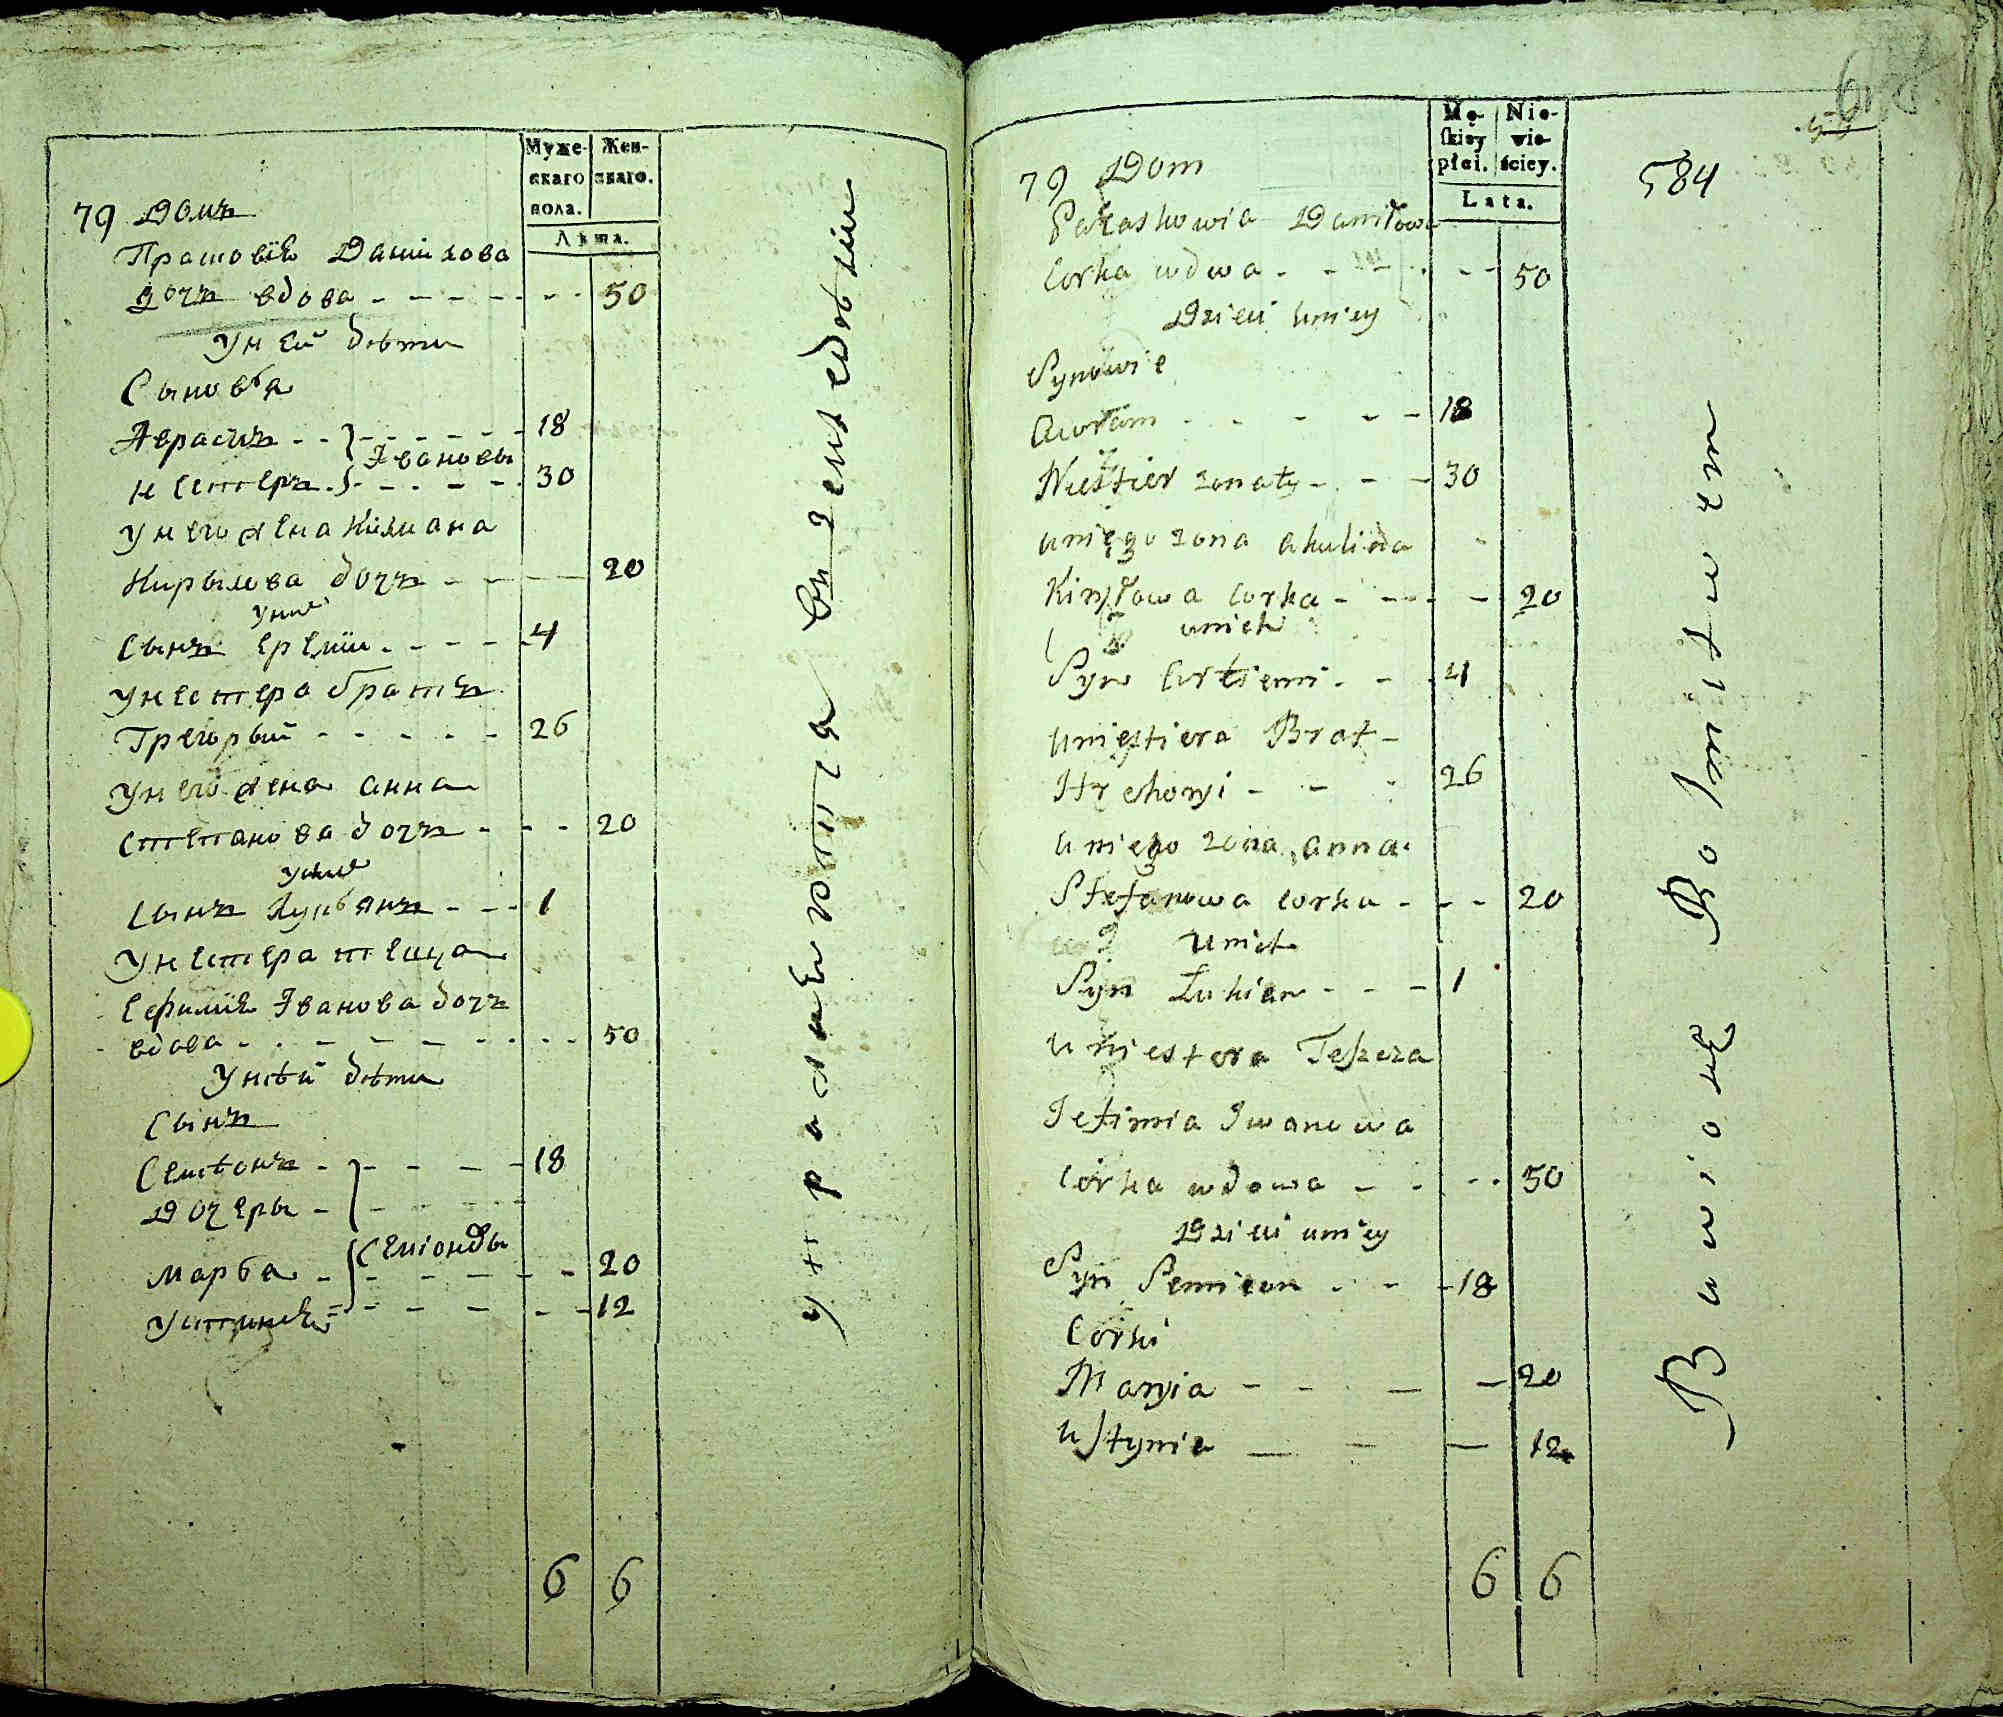 Муже-
скаго
пола.
Жен-
скаго.
Лѣта.
79 Домъ
Прасковія Данилова
дочъ вдова - - - - - - - 50
У ней дѣти
Сыновъя
Аврамъ - - - - - - - 18
Ивановы
Нестеръ - - - - - 30
У него жена
Кирылова дочъ - - - 20
У них
Сынъ Еремій - - - - 4
У Нестера братъ
Грегорый - - - - - 26
У него жена Анна
Степанова дочъ - - - 20
У них
Сынъ Лукъянъ - - - 1
У Нестера теща
Ефимія Иванова дочъ
вдова - - - - - - - - 50
У ней дѣти
Сынъ
Семѣонъ - - - - - 18
Дочеры - - - - -
Марья - - - - - - 20
Устинія - - - - - - 12
6 6
Mę-
skiey
płci.
Nie-
wie-
ściey.
Lata.
584
79 Dom
Paraskowia Daniłowa
Corka wdwa - - - - - 50
Dzieci u niey
Synowie
Awram - - - - - 18
Niestier zonaty - - - 30
u niego zona Akulina
Kiryłowa Corka - - - - 20
u nich
Syn - - 4
u Niestiera Brat -
Hrehoryi - - - 26
u niego zona Anna
Stefanowa Corka - - - 20
u nich
Syn Łukian - - - 1
u Niestera
Jefimia Iwanowa
Corka wdowa - - - - 50
Dzieci u niey
Syn Semieon - - - 18
Corki
Maryia - - - - 20
Ustynia - - - 12
6 6